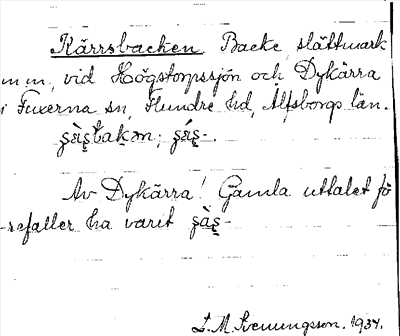 Kärrsbacken. Backe, slättmark
m.m. vid Högstorpssjön och Dykärra
i Fuxerna sn, Flundre hd, Älfsborgs län.
Av Dykärra! Gamla uttalet fö
-refaller ha varit
L.M. Svenungsson. 1934.